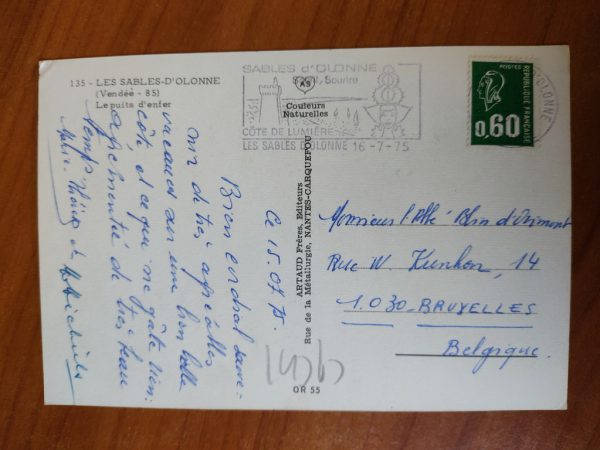 135 - LES SABLES-D'OLONNE
(Vendée - 85)
Le puits d'enfer
SABLES d'OLONNE
Soleil, Sourire
Couleurs
Naturelles
CÔTE DE LUMIÈRE
LES SABLES D'OLONNE 16-7-75
D'OLONNE
POSTES
REPUBLIQUE FRANÇAISE
0,60
ARTAUD Frères, Editeurs
Rue de la Métallurgie, NANTES-CARQUEFOU
OR 55
Ce 15.07.75.
Bien cordial souve-
nir de très agréables
vacances sur une bien belle
côte, et ce que ne gâte rien:
agrémentée de très beau
temps.
Marie-Thérèse
Monsieur l'Abbé
Rue W. 14
1.030-BRUXELLES
Belgique.